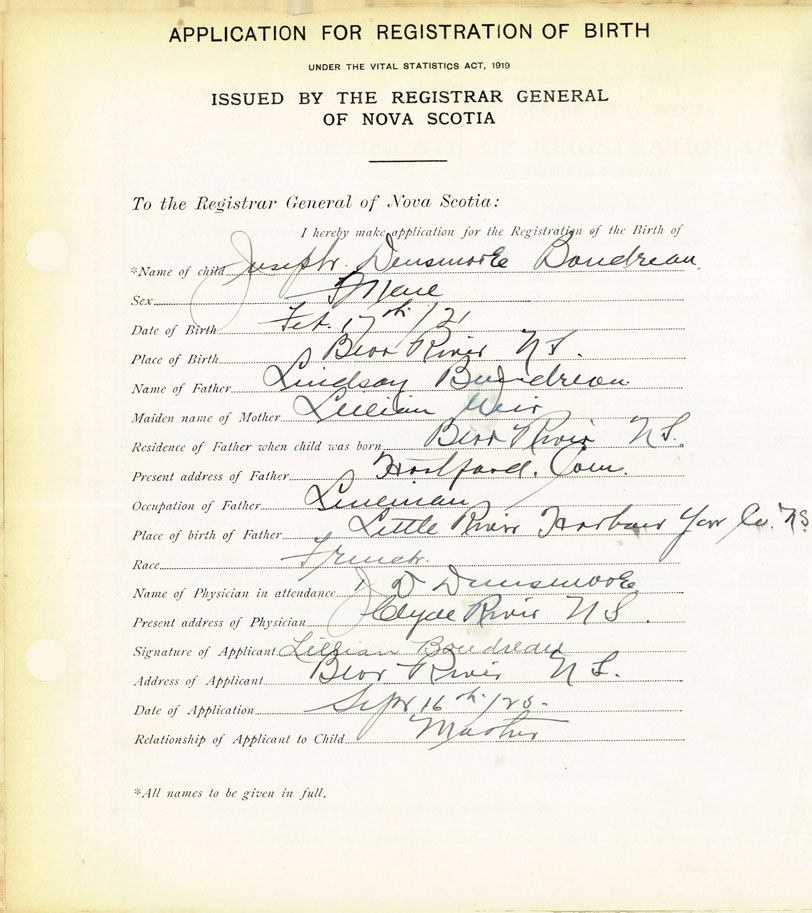 APPLICATION FOR REGISTRATION OF BIRTH
UNDER THE VITAL STATISTICS ACT, 1919
ISSUED BY THE REGISTRAR GENERAL
OF NOVA SCOTIA
To the Registrar General of Nova Scotia:
I hereby make application for the Registration of the Birth of
*Name of child Joseph Densmore Boudreau
Sex Male
Date of Birth Feb. 17th/21
Place of Birth Bear River N.S.
Name of Father Lindsay Boudreau
Maiden name of Mother Lillian Weir
Residence of Father when child was born Bear River N.S.
Present address of Father Hartford. Conn.
Occupation of Father Lineman
Place of birth of Father Little River Harbour Yar Co. N.S
Race French
Name of Physician in attendance D Dinsmore
Present address of Physician Clyde River N S.
Signature of Applicant Lillian Boudreau
Address of Applicant Bear River N.S.
Date of Application Sept 16th/25.
Relationship of Applicant to Child Mother
*All names to be given in full.